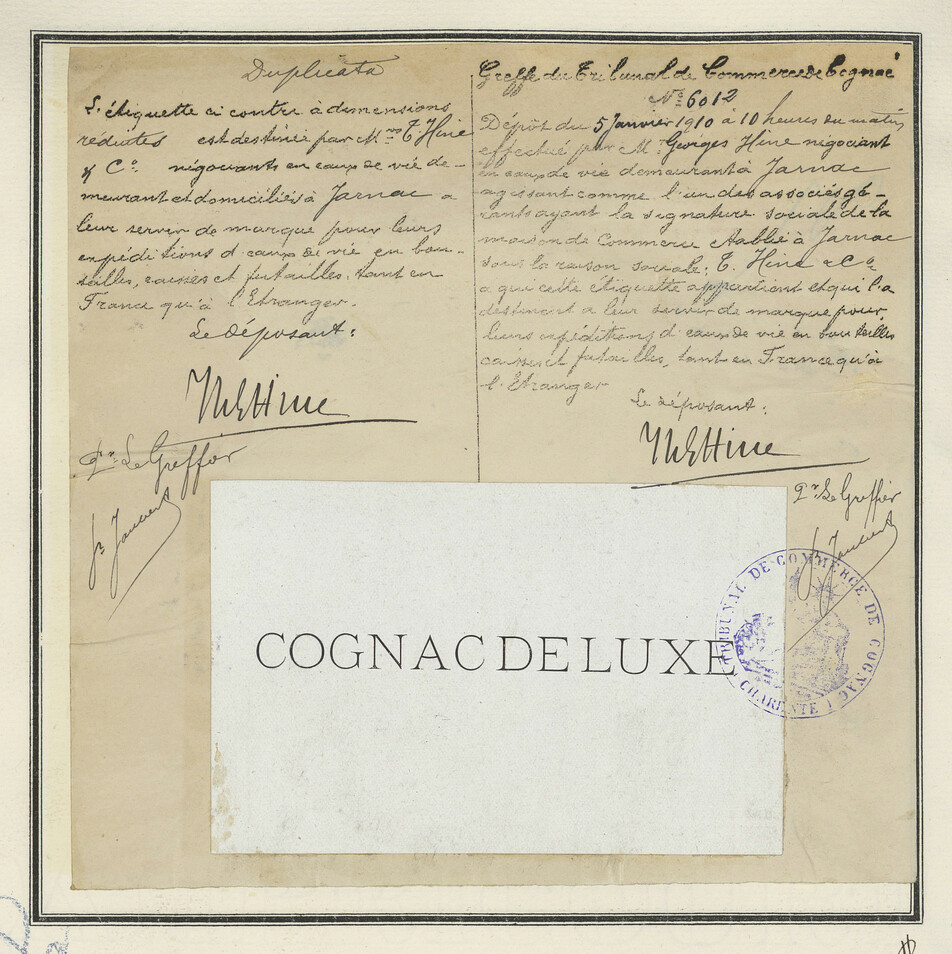 Duplicata
L'étiquette ci contre à dimensions
réduites est destinée par Mrs T. Hine
& Co négociants en eaux de vie de-
meurant et domiciliés à Jarnac a
leur servir de marque pour leurs
expéditions d'eaux de vie en bou-
teilles, caisses et futailles, tant en
France qu'à l'Etranger.
Le déposant:
Hine
Pr Le Greffier
Greffe du Tribunal de Commerce de Cognac
No 6012
Dépôt du 5 Janvier 1910 à 10 heures du matin
effectué par M. Georges Hine négociant
en eaux de vie demeurant à Jarnac
agissant comme l'un des associés gé-
rants ayant la signature sociale de la
maison de Commerce établie à Jarnac
sous la raison sociale: T. Hine & Co
a qui cette étiquette appartient et qui l'a
destinent a leur servir de marque pour
leurs expéditions d'eaux de vie en bouteilles
caisses et futailles, tant en France qu'à
l'Etranger
Le déposant:
Hine
Pr Le Greffier
COGNAC DE LUXE
TRIBUNAL DE COMMERCE DE COGNAC
CHARENTE